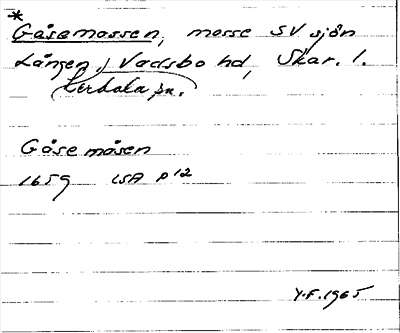 *
Gåsemossen, mosse SV sjön
Lången, Vadsbo hd, Skar. l.
Lerbäcks sn.
Gåse måsen
1659 LSA P 12
Y.F. 1965